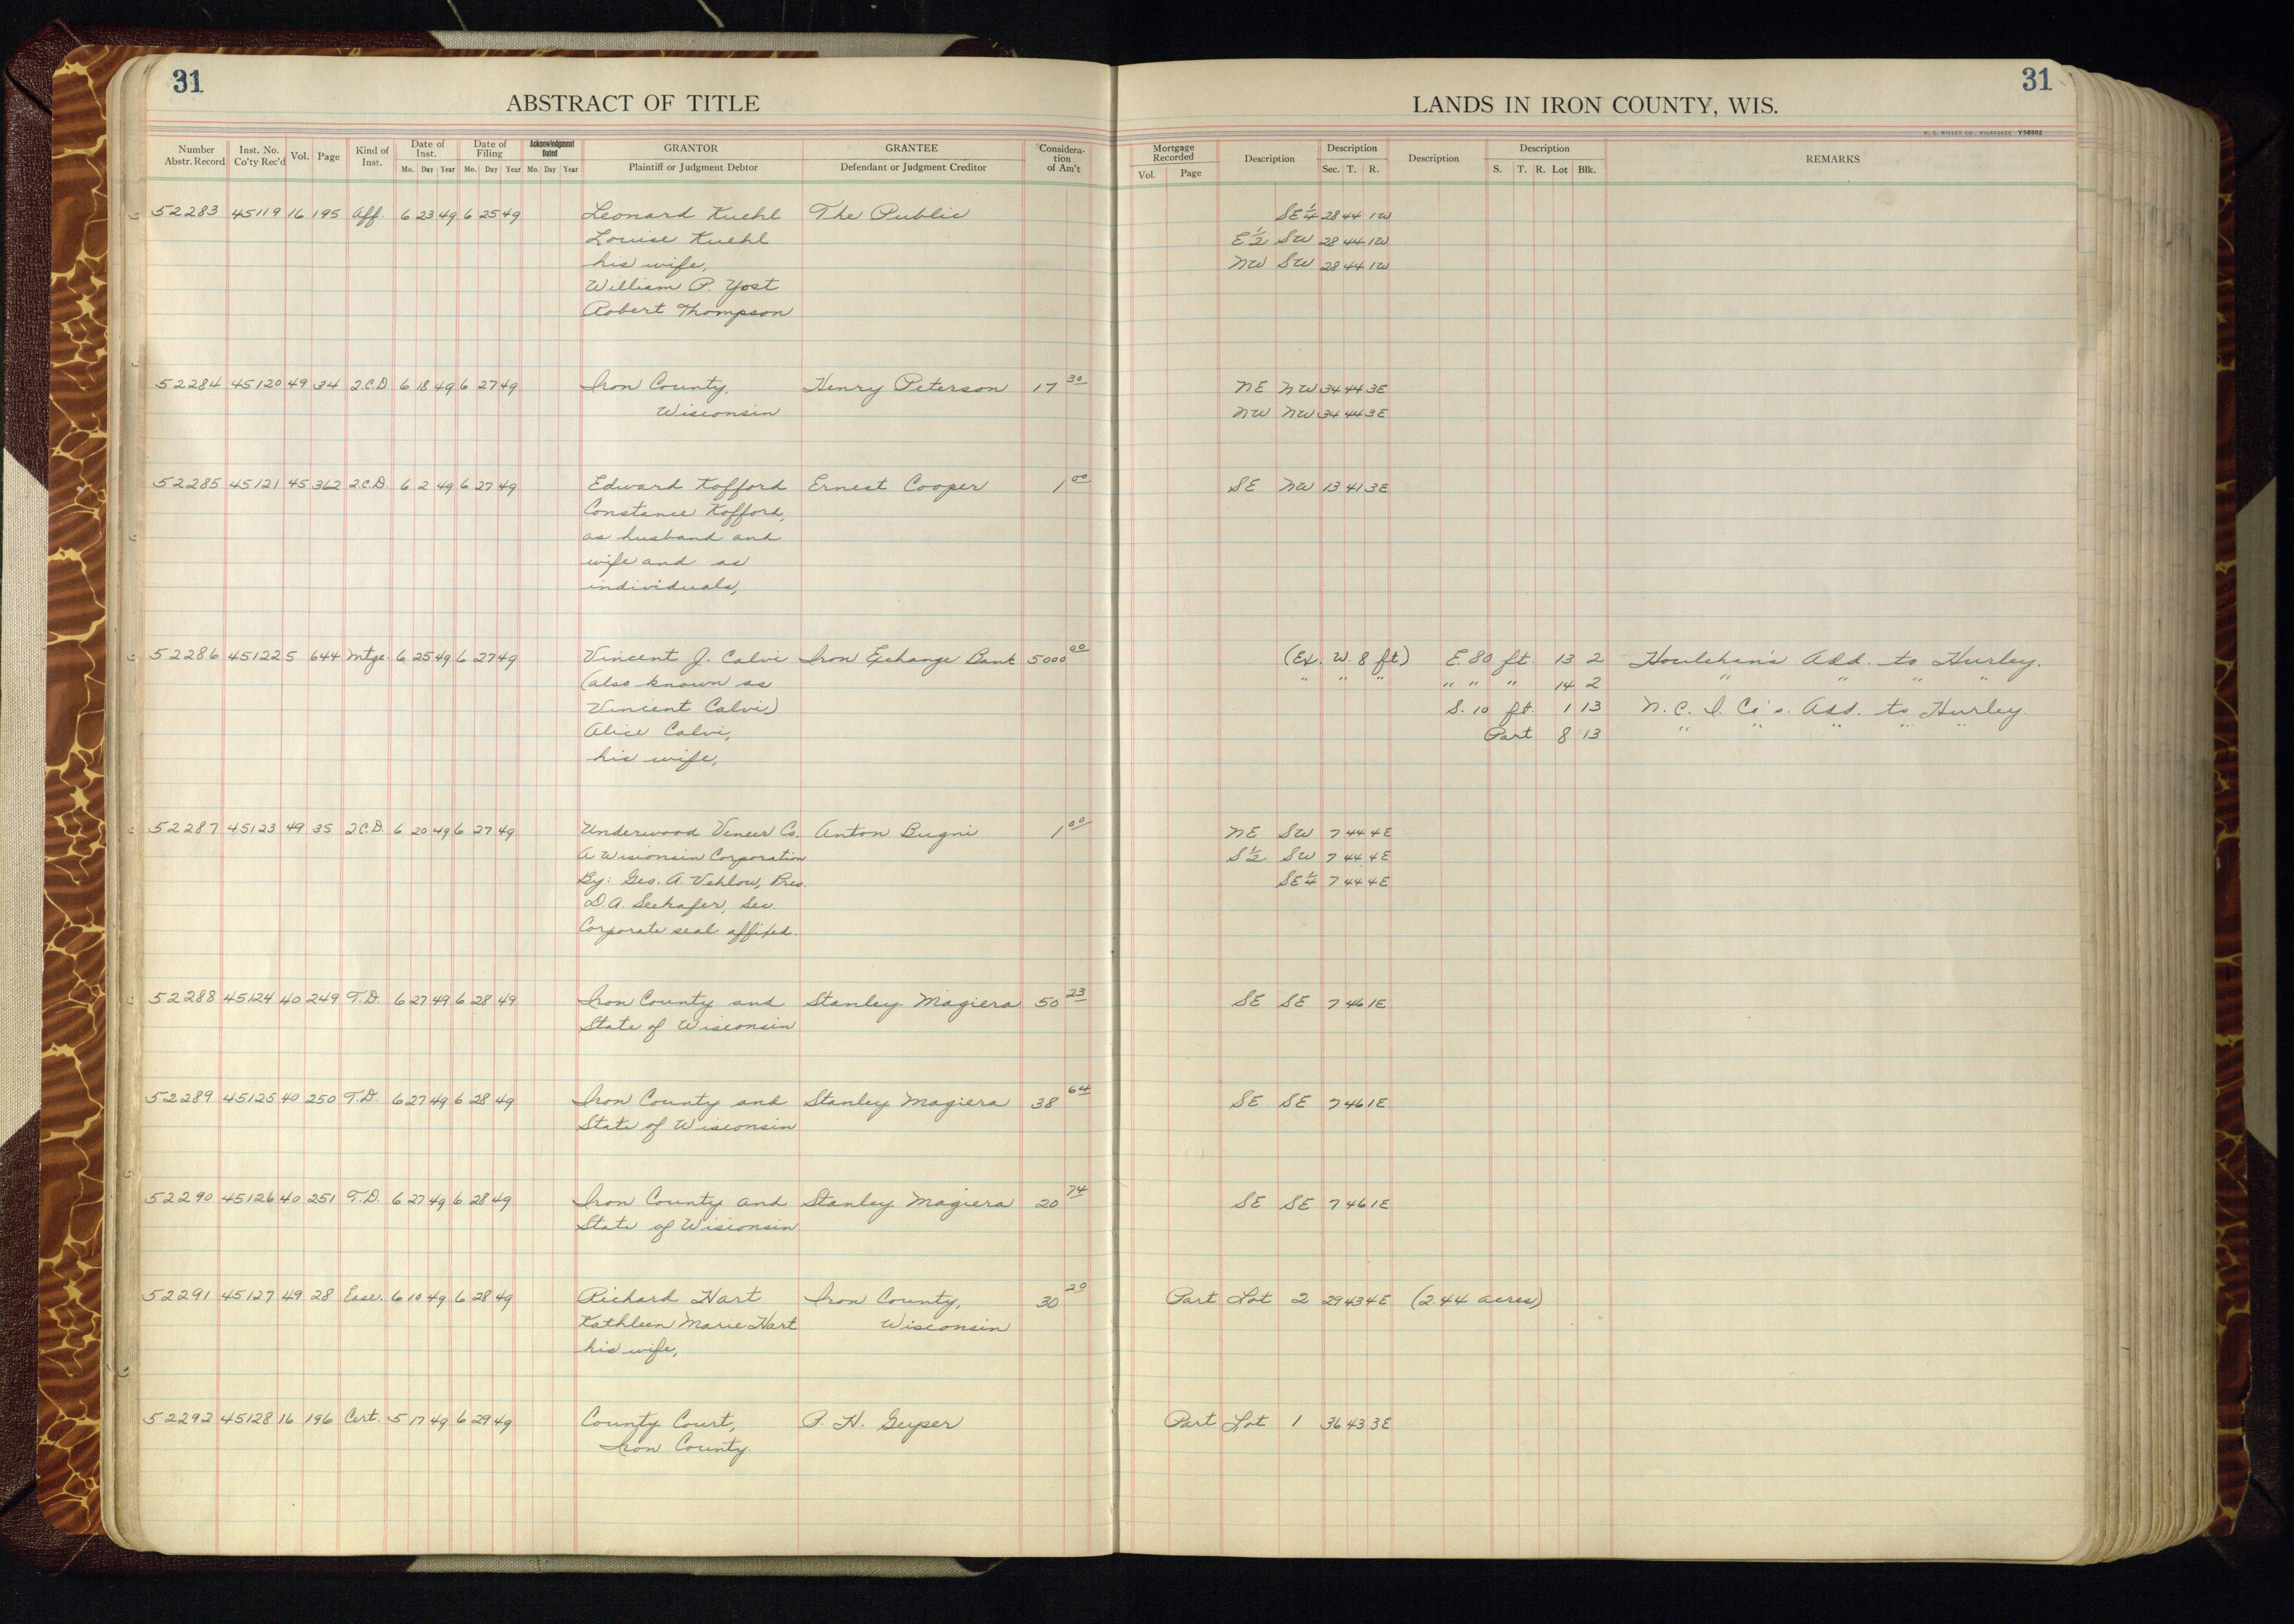 31
31
ABSTRACT OF TITLE
LANDS IN IRON COUNTY, WIS.
H. C. MILLER CO., MILWAUKEE Y36552
Number Abstr. Record Inst. No. Co'ty Rec'd Vol. Page Kind of Inst. Date of Inst. Mo. Day Year Date of Filing Mo. Day Year Acknowledgment Dated Mo. Day Year GRANTOR Plaintiff or Judgment Debtor GRANTEE Defendant or Judgment Creditor Considera-tion of Am't
Mortgage Recorded Vol. Page Description Description Sec. T. R. Description Description S. T. R. Lot Blk. REMARKS
52283 45119 16 195 Aff. 6 23 49 6 25 49 Leonard Kuehl The Public SE¼ 28 44 1W
Louise Kuehl E½ SW 28 44 1W
his wife, NW SW 28 44 1W
William P. Yost
Robert Thompson
52284 45120 49 34 2.C.D 6 18 49 6 27 49 Iron County, Henry Peterson 17 30 NE NW 34 44 3E
Wisconsin NW NW 34 44 3E
52285 45121 45 362 2.C.D. 6 2 49 6 27 49 Edward Kofford Ernest Cooper 1 00 SE NW 13 41 3E
Constance Kofford,
as husband and
wife and as
individuals,
52286 45122 5 644 Mtge. 6 25 49 6 27 49 Vincent J. Calvi Iron Exchange Bank 5000 00 (Ex. W. 8 ft) E. 80 ft. 13 2 Houlehan's Add. to Hurley.
(also known as " " " " " " 14 2 " " " "
Vincent Calvi) S. 10 ft. 1 13 N. C. I. Co's. Add. to Hurley.
Alice Calvi, Part 8 13 " " " " "
his wife,
52287 45123 49 35 2C.D. 6 20 49 6 27 49 Underwood Veneer Co. Anton Bugni 1 00 NE SW 7 44 4E
A Wisconsin Corporation S½ SW 7 44 4E
By: Geo. A. Vehlow, Pres. SE¼ 7 44 4E
D.A. Seehafer, Sec.
Corporate seal affixed.
52288 45124 40 249 T.D. 6 27 49 6 28 49 Iron County and Stanley Magiera 50 23 SE SE 7 46 1E
State of Wisconsin
52289 45125 40 250 T.D. 6 27 49 6 28 49 Iron County and Stanley Magiera 38 64 SE SE 7 46 1E
State of Wisconsin
52290 45126 40 251 T.D. 6 27 49 6 28 49 Iron County and Stanley Magiera 20 74 SE SE 7 46 1E
State of Wisconsin
52291 45127 49 28 Ease. 6 10 49 6 28 49 Richard Hart Iron County, 30 20 Part Lot 2 29 43 4E (2.44 acres)
Kathleen Marie Hart Wisconsin
his wife,
52292 45128 16 196 Cert. 5 17 49 6 29 49 County Court, P. H. Geyser Part Lot 1 36 43 3E
Iron County.